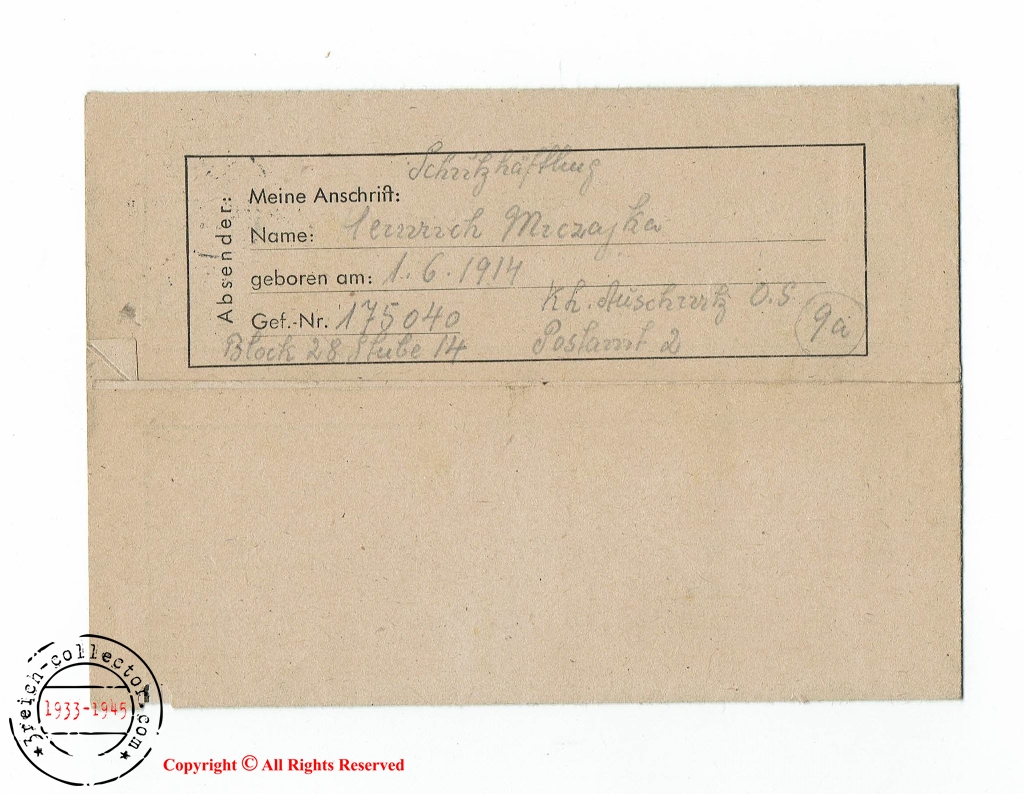 Absender:
Schutzhäftling
Meine Anschrift:
Name: Heinrich Mrczajka
geboren am: 1.6.1914
Gef.-Nr. 175040
Kh. Auschwitz O.S.
Block 28 Stube 14
Postamt 2
9a
3reich-collector.com
1933-1945
Copyright © All Rights Reserved